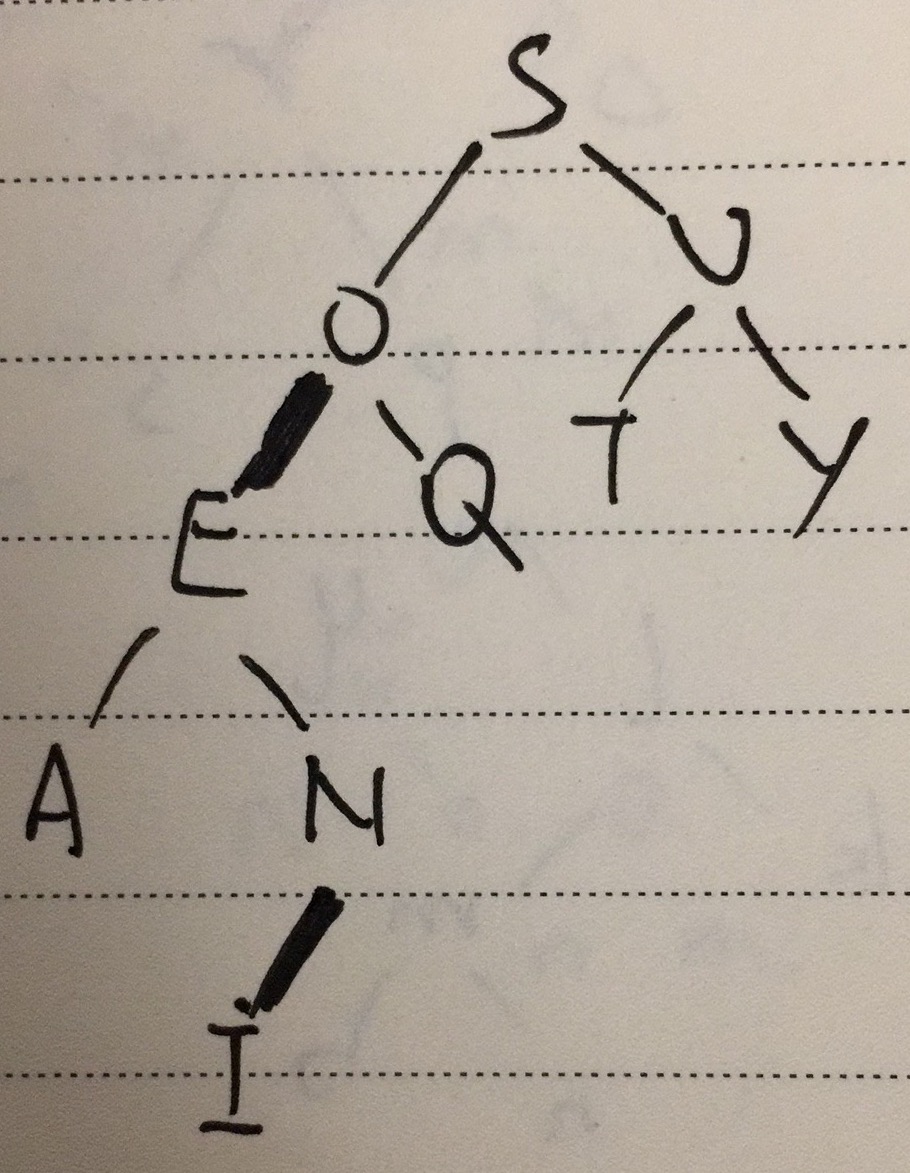 S
O U
E Q T Y
A N
I